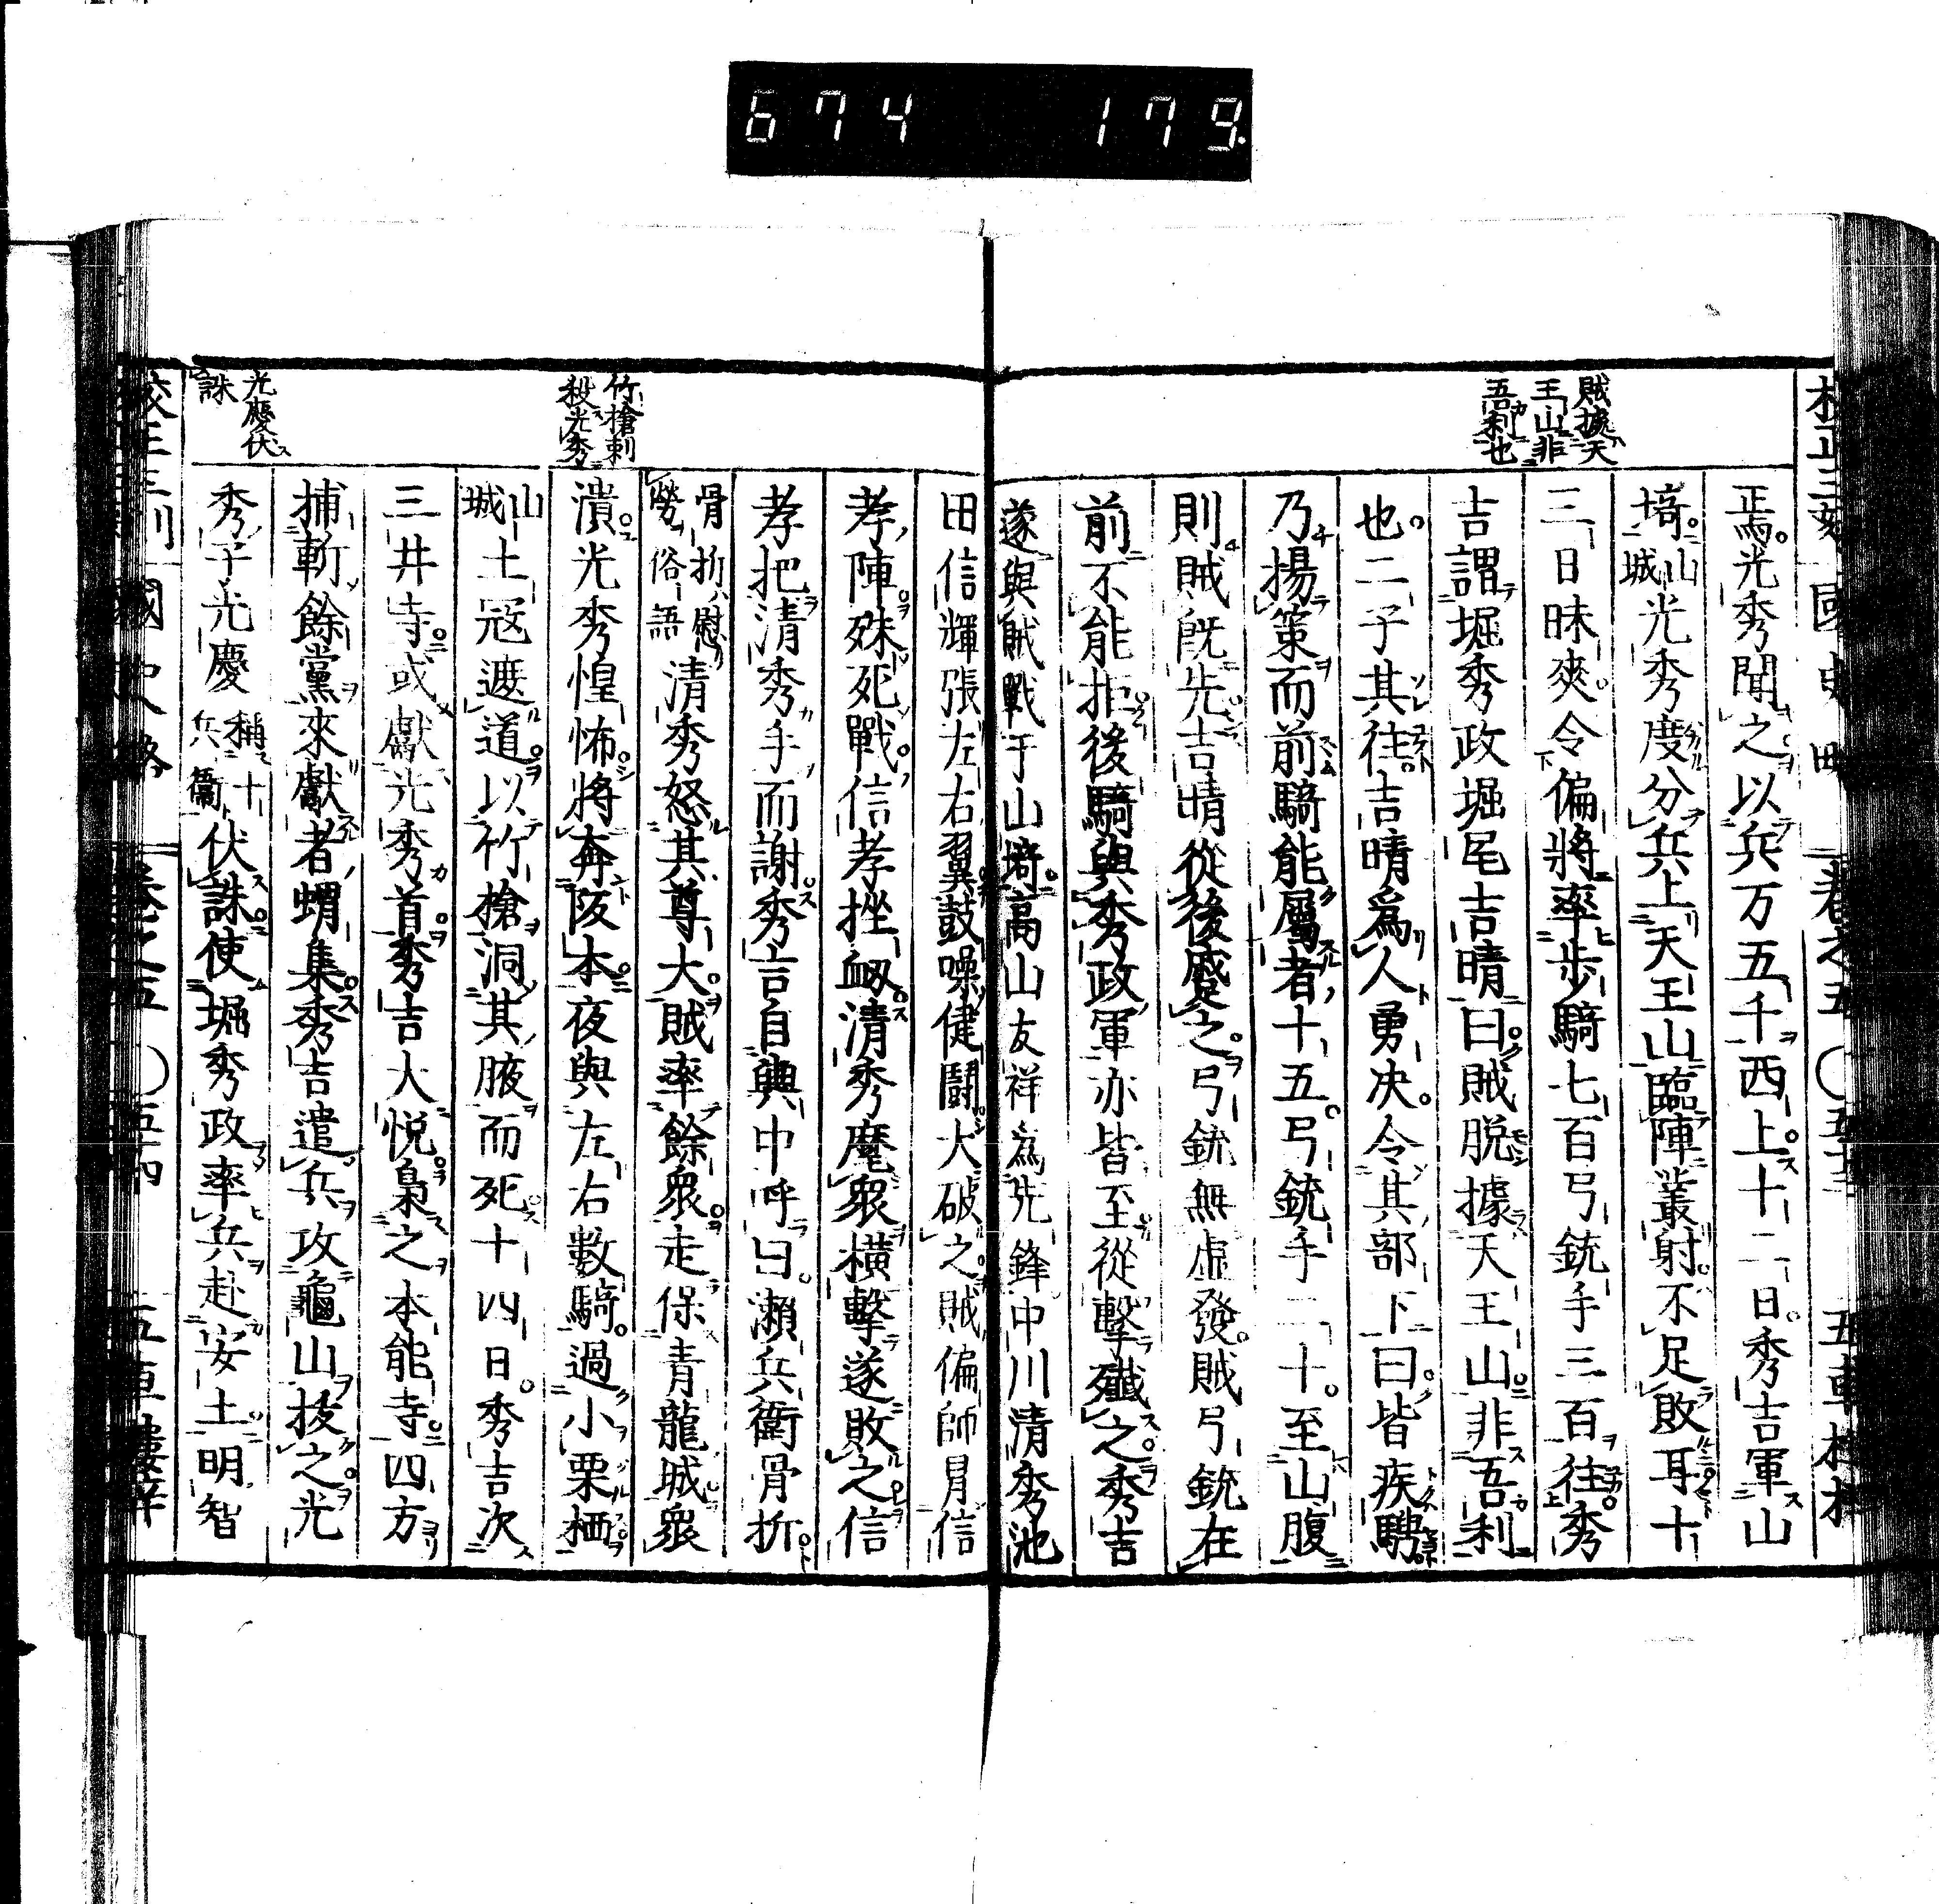 674 179
賊據天
王山非
吾利也
焉光秀聞之以兵万五千西上十二日秀吉軍山
埼山城光秀度分兵上天王山臨陣叢射不足敗耳十
三日昧爽令偏將率步騎七百弓銃手三百往秀
吉謂堀秀政堀尾吉晴曰賊脱據天王山非吾利
也二子其往吉晴爲人勇决令其部下曰皆疾騁
乃揚策而前騎能屬者十五弓銃手二十至山腹
則賊既先吉晴從後蹙之弓銃無虛發賊弓銃在
前不能拒後騎與秀政軍亦皆至從擊殲之秀吉
遂與賊戰于山埼高山友祥爲先鋒中川清秀池
田信輝張左右翼鼓噪健鬪大破之賊偏師冒信
孝陣殊死戰信孝挫衂清秀麾衆橫擊遂敗之信
孝把清秀手而謝秀吉自輿中呼曰瀬兵衞骨折
骨折慰勞俗語清秀怒其尊大賊率餘衆走保青龍城衆
潰光秀惶怖將奔阪本夜與左右數騎過小栗栖
山城土寇遮道以竹槍洞其腋而死十四日秀吉次
三井寺或獻光秀首秀吉大悅梟之本能寺四方
捕斬餘黨來獻者蝟集秀吉遣兵攻龜山拔之光
秀子光慶稱十兵衞伏誅使堀秀政率兵赴安土明智
竹槍刺
殺光秀
光慶伏
誅